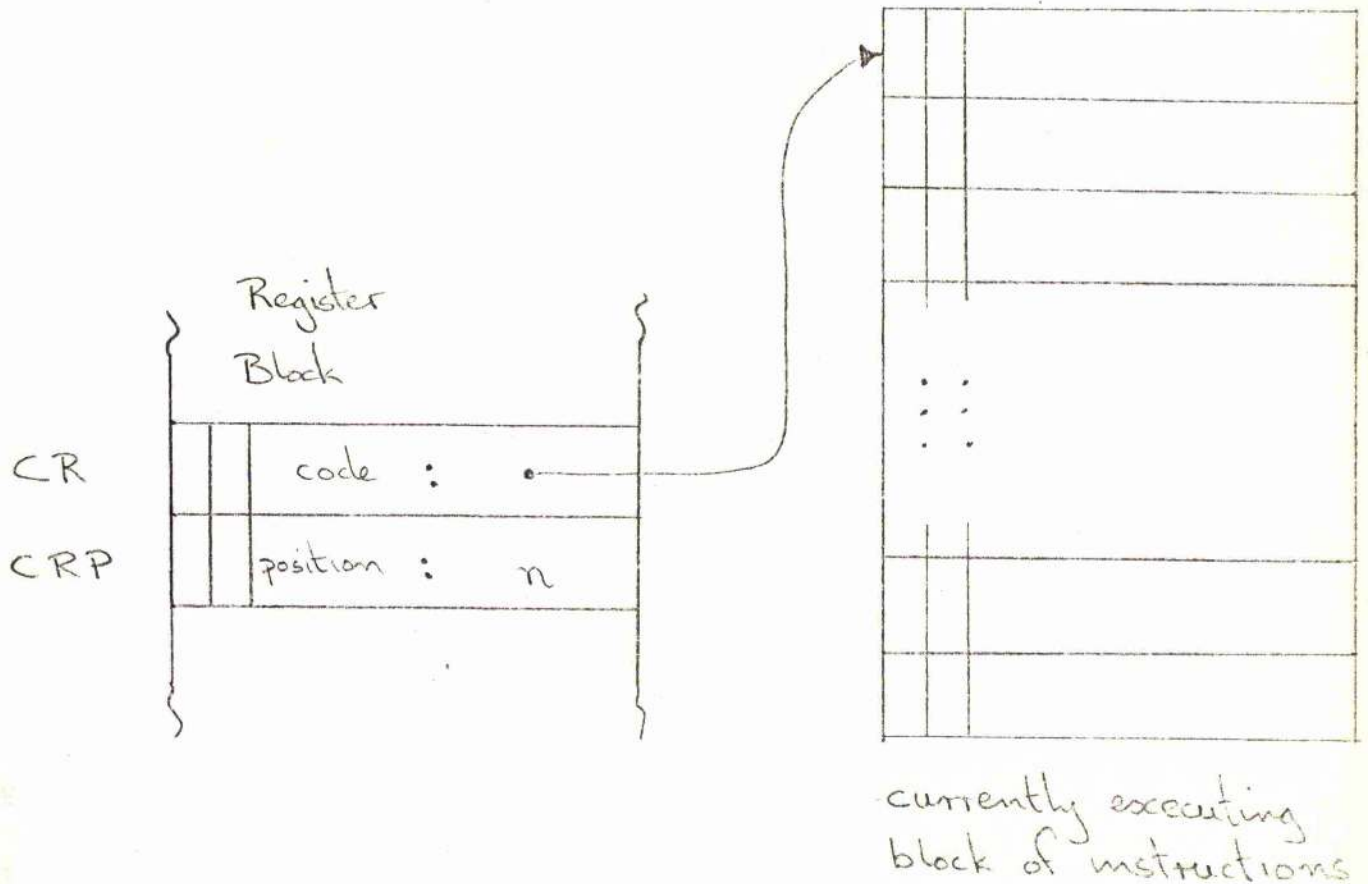 Register
Block
CR code : •
CRP position : n
currently executing
block of instructions